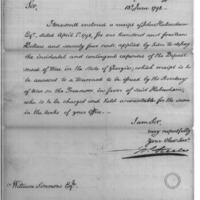 13th June 1798.
Sir,
I transmit enclosed a receipt of John Habersham
Esqr. dated April 5th 1798, for one hundred and fourteen
Dollars and seventy four cents applied by him to defray
the incidental and contingent expenses of the Depart-
ment of War in the State of Georgia, which receipt is to
be annexed to a Warrant to be issued by the Secretary
of War on the Treasurer, in favor of said Habersham,
who is to be charged and held accountable for the same
in the books of your office.
I am Sir,
very respectfully
Your Obed. Serv.
William Simmons Esqr.